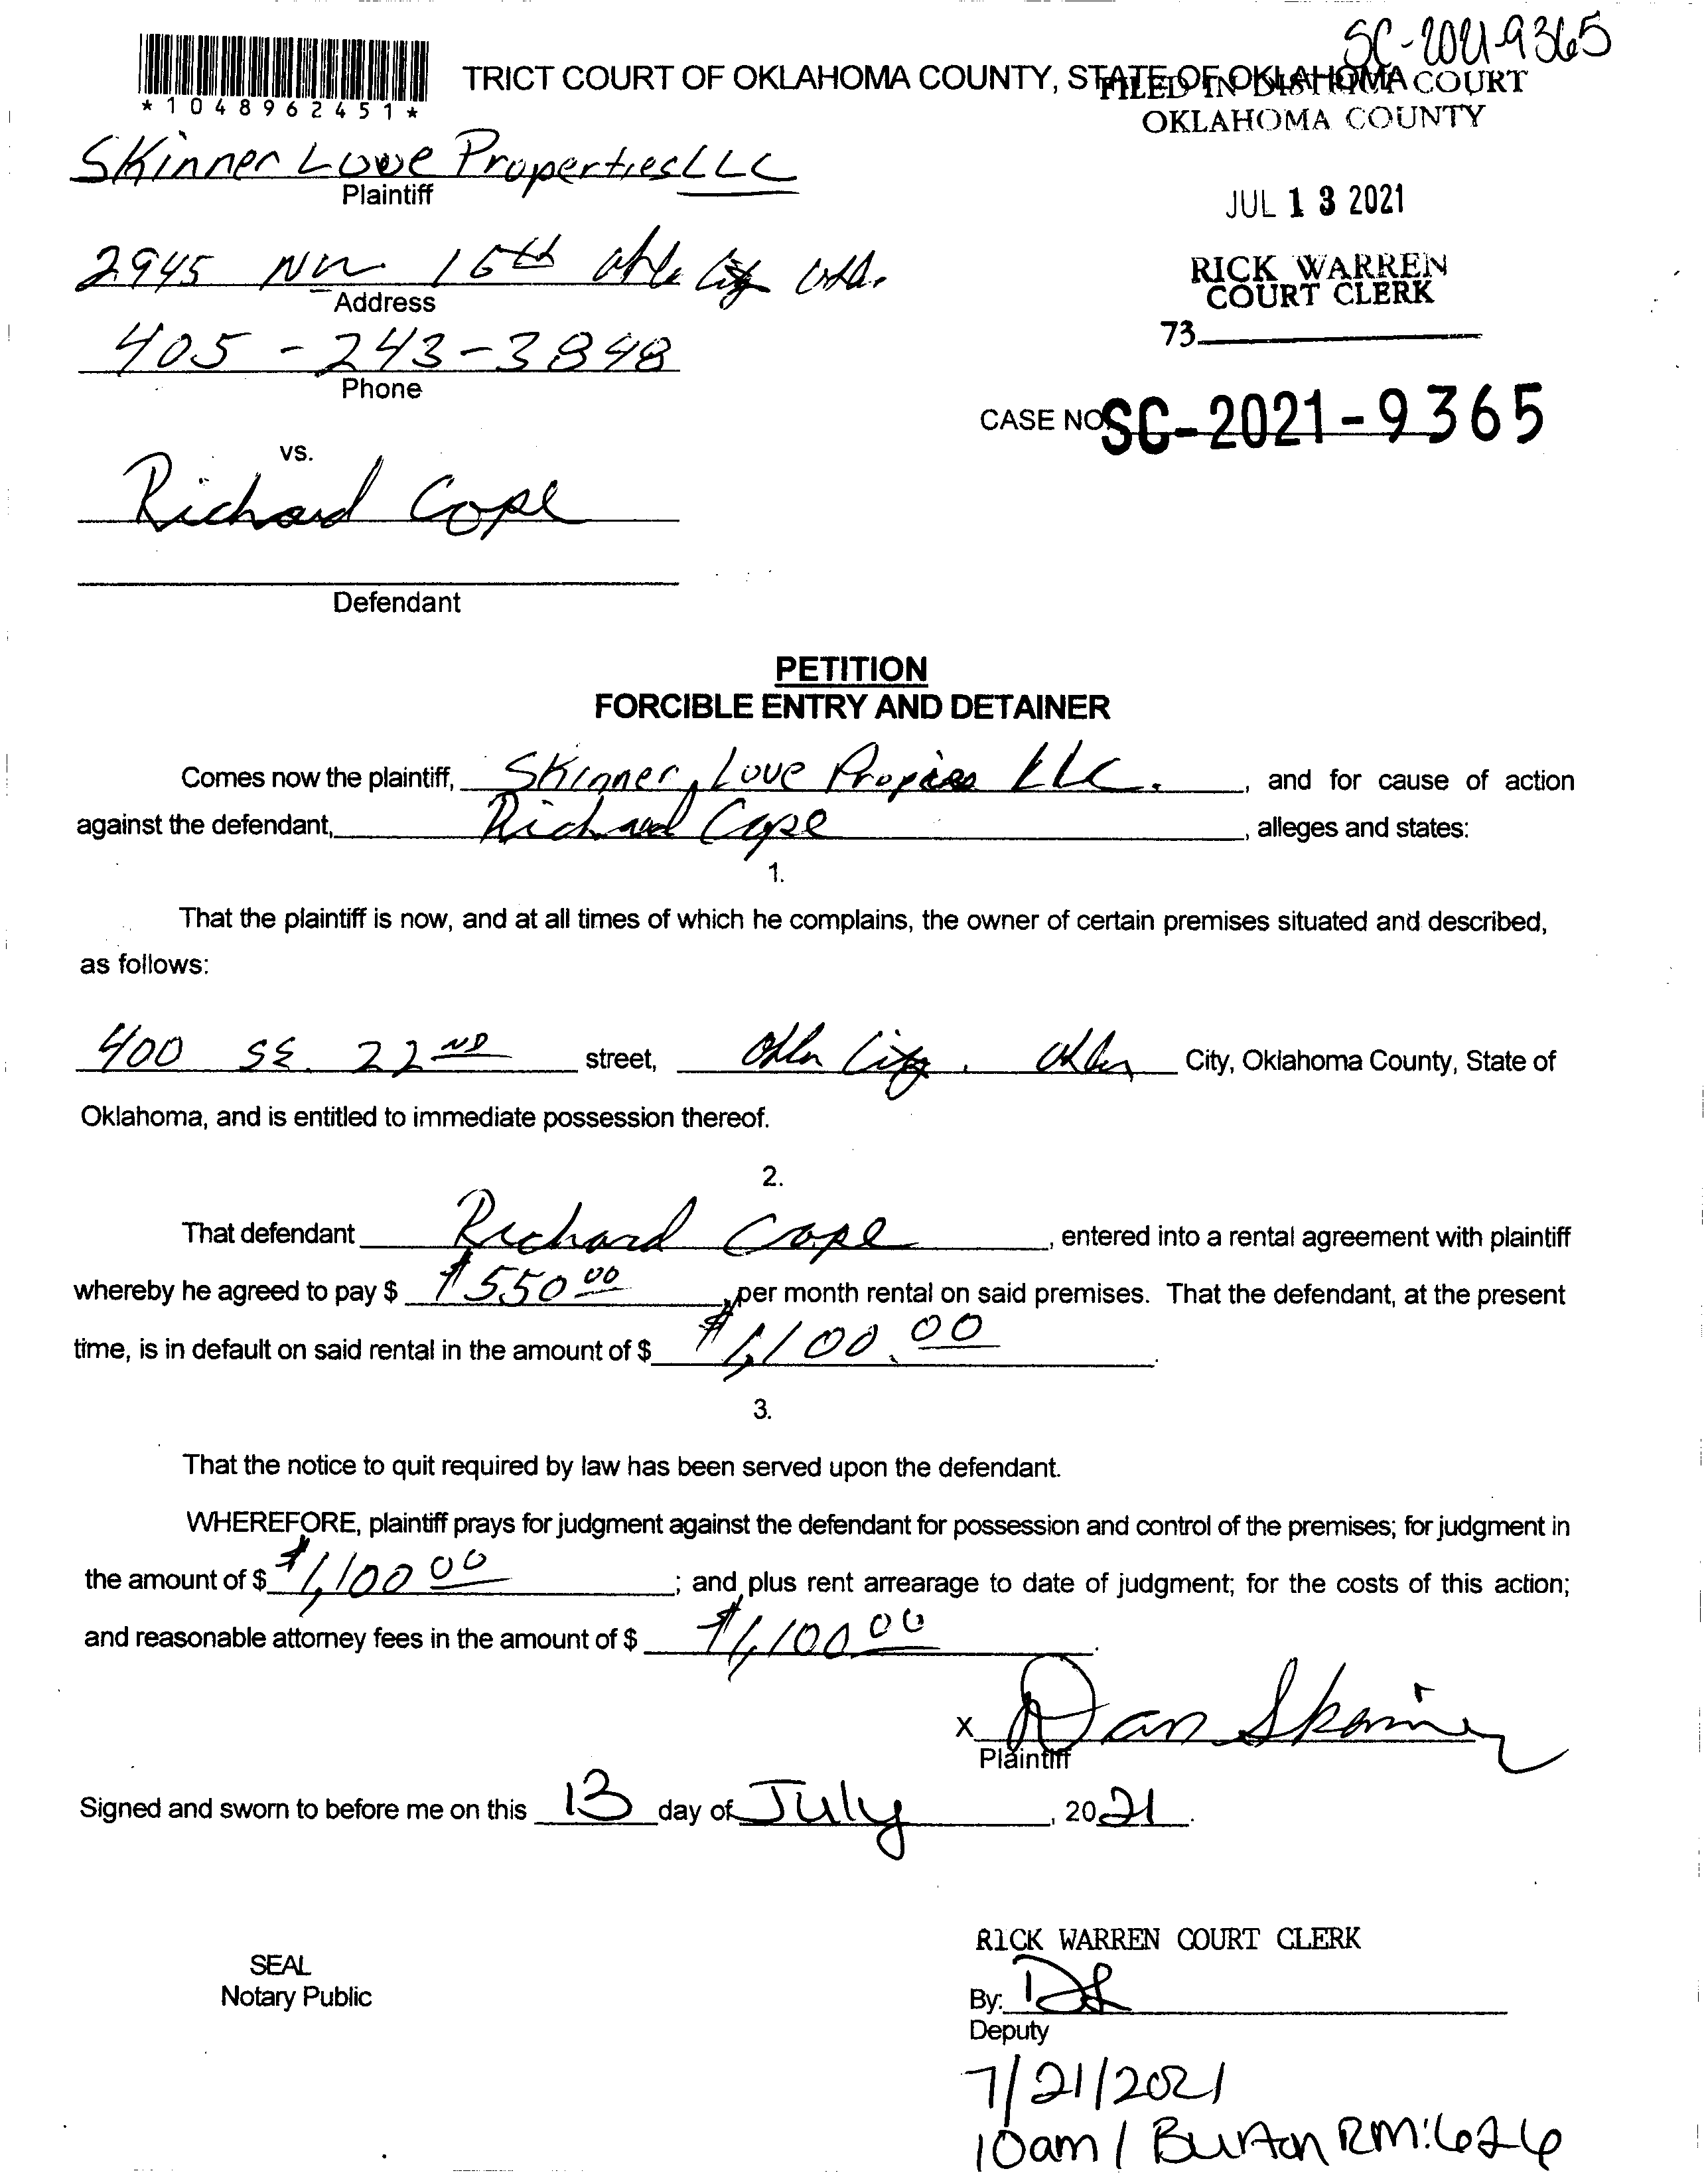 SC-2021-9365
TRICT COURT OF OKLAHOMA COUNTY, STATE OF OKLAHOMA
FILED IN DISTRICT COURT
OKLAHOMA COUNTY
*1048962451*
Skinner Love Properties LLC
Plaintiff
JUL 13 2021
2945 NW 16th Okla City Okla.
Address
RICK WARREN
COURT CLERK
73
405-243-3898
Phone
CASE NO. SC-2021-9365
vs.
Richard Cope
Defendant
PETITION
FORCIBLE ENTRY AND DETAINER
Comes now the plaintiff, Skinner, Love LLC., and for cause of action
against the defendant, Richard Cope, alleges and states:
1.
That the plaintiff is now, and at all times of which he complains, the owner of certain premises situated and described,
as follows:
400 SE. 22ND street, Okla City. Okla City, Oklahoma County, State of
Oklahoma, and is entitled to immediate possession thereof.
2.
That defendant Richard Cope, entered into a rental agreement with plaintiff
whereby he agreed to pay $ $550.00 per month rental on said premises. That the defendant, at the present
time, is in default on said rental in the amount of $ $1,100.00.
3.
That the notice to quit required by law has been served upon the defendant.
WHEREFORE, plaintiff prays for judgment against the defendant for possession and control of the premises; for judgment in
the amount of $ $1,100 00; and plus rent arrearage to date of judgment; for the costs of this action;
and reasonable attorney fees in the amount of $ $1,100 00.
X Dan Skinner
Plaintiff
Signed and sworn to before me on this 13 day of July, 2021.
RICK WARREN COURT CLERK
SEAL
Notary Public
By:
Deputy
7/21/2021
10am / Burton RM:626